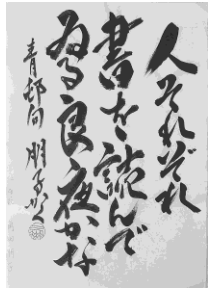 人それぞれ
書を読んで
ゐる良夜かな
青邨句 かく